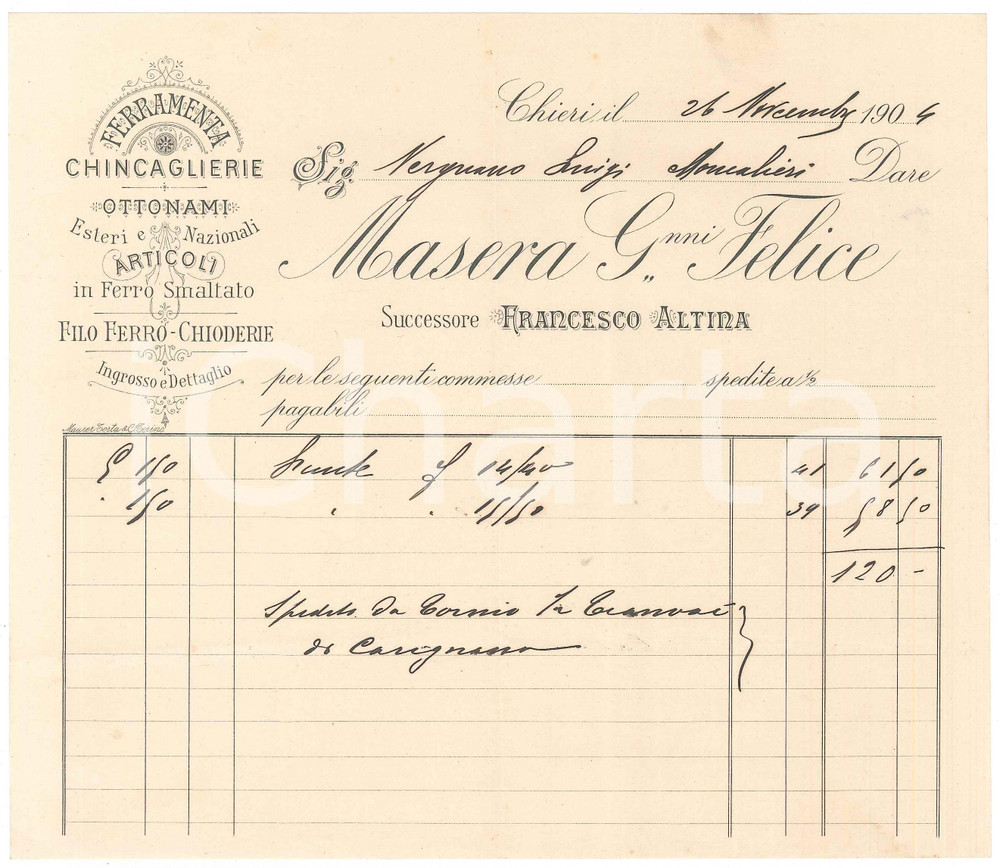 FERRAMENTA
CHINCAGLIERIE
OTTONAMI
Esteri e Nazionali
ARTICOLI
in Ferro Smaltato
FILO FERRO-CHIODERIE
Ingrosso e Dettaglio
Chieri, il 26 Novembre 1904
Sig. Vergnano Luigi Moncalieri Dare
Masera G.nni Felice
Successore FRANCESCO ALTINA
per le seguenti commesse spedite a 1/2
pagabili
150 14/40 41 61 50
150 15/50 39 58 50
120 -
Spedito da Torino
di Carignano
Charta